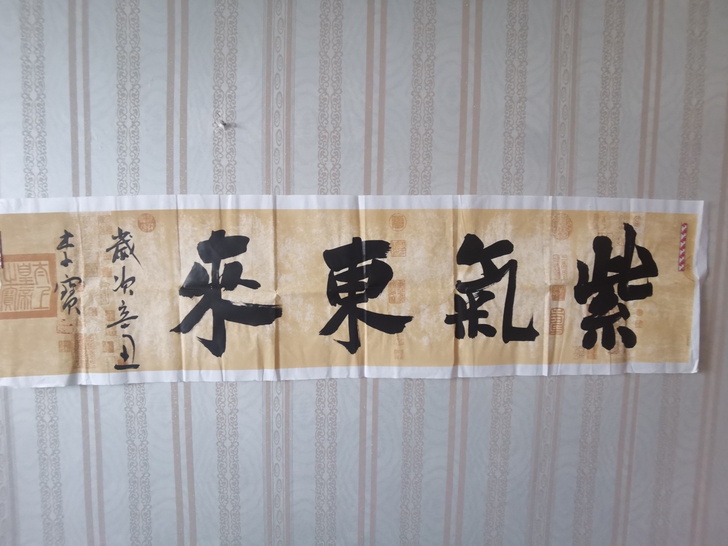 紫氣東來
歲次辛丑
李寶